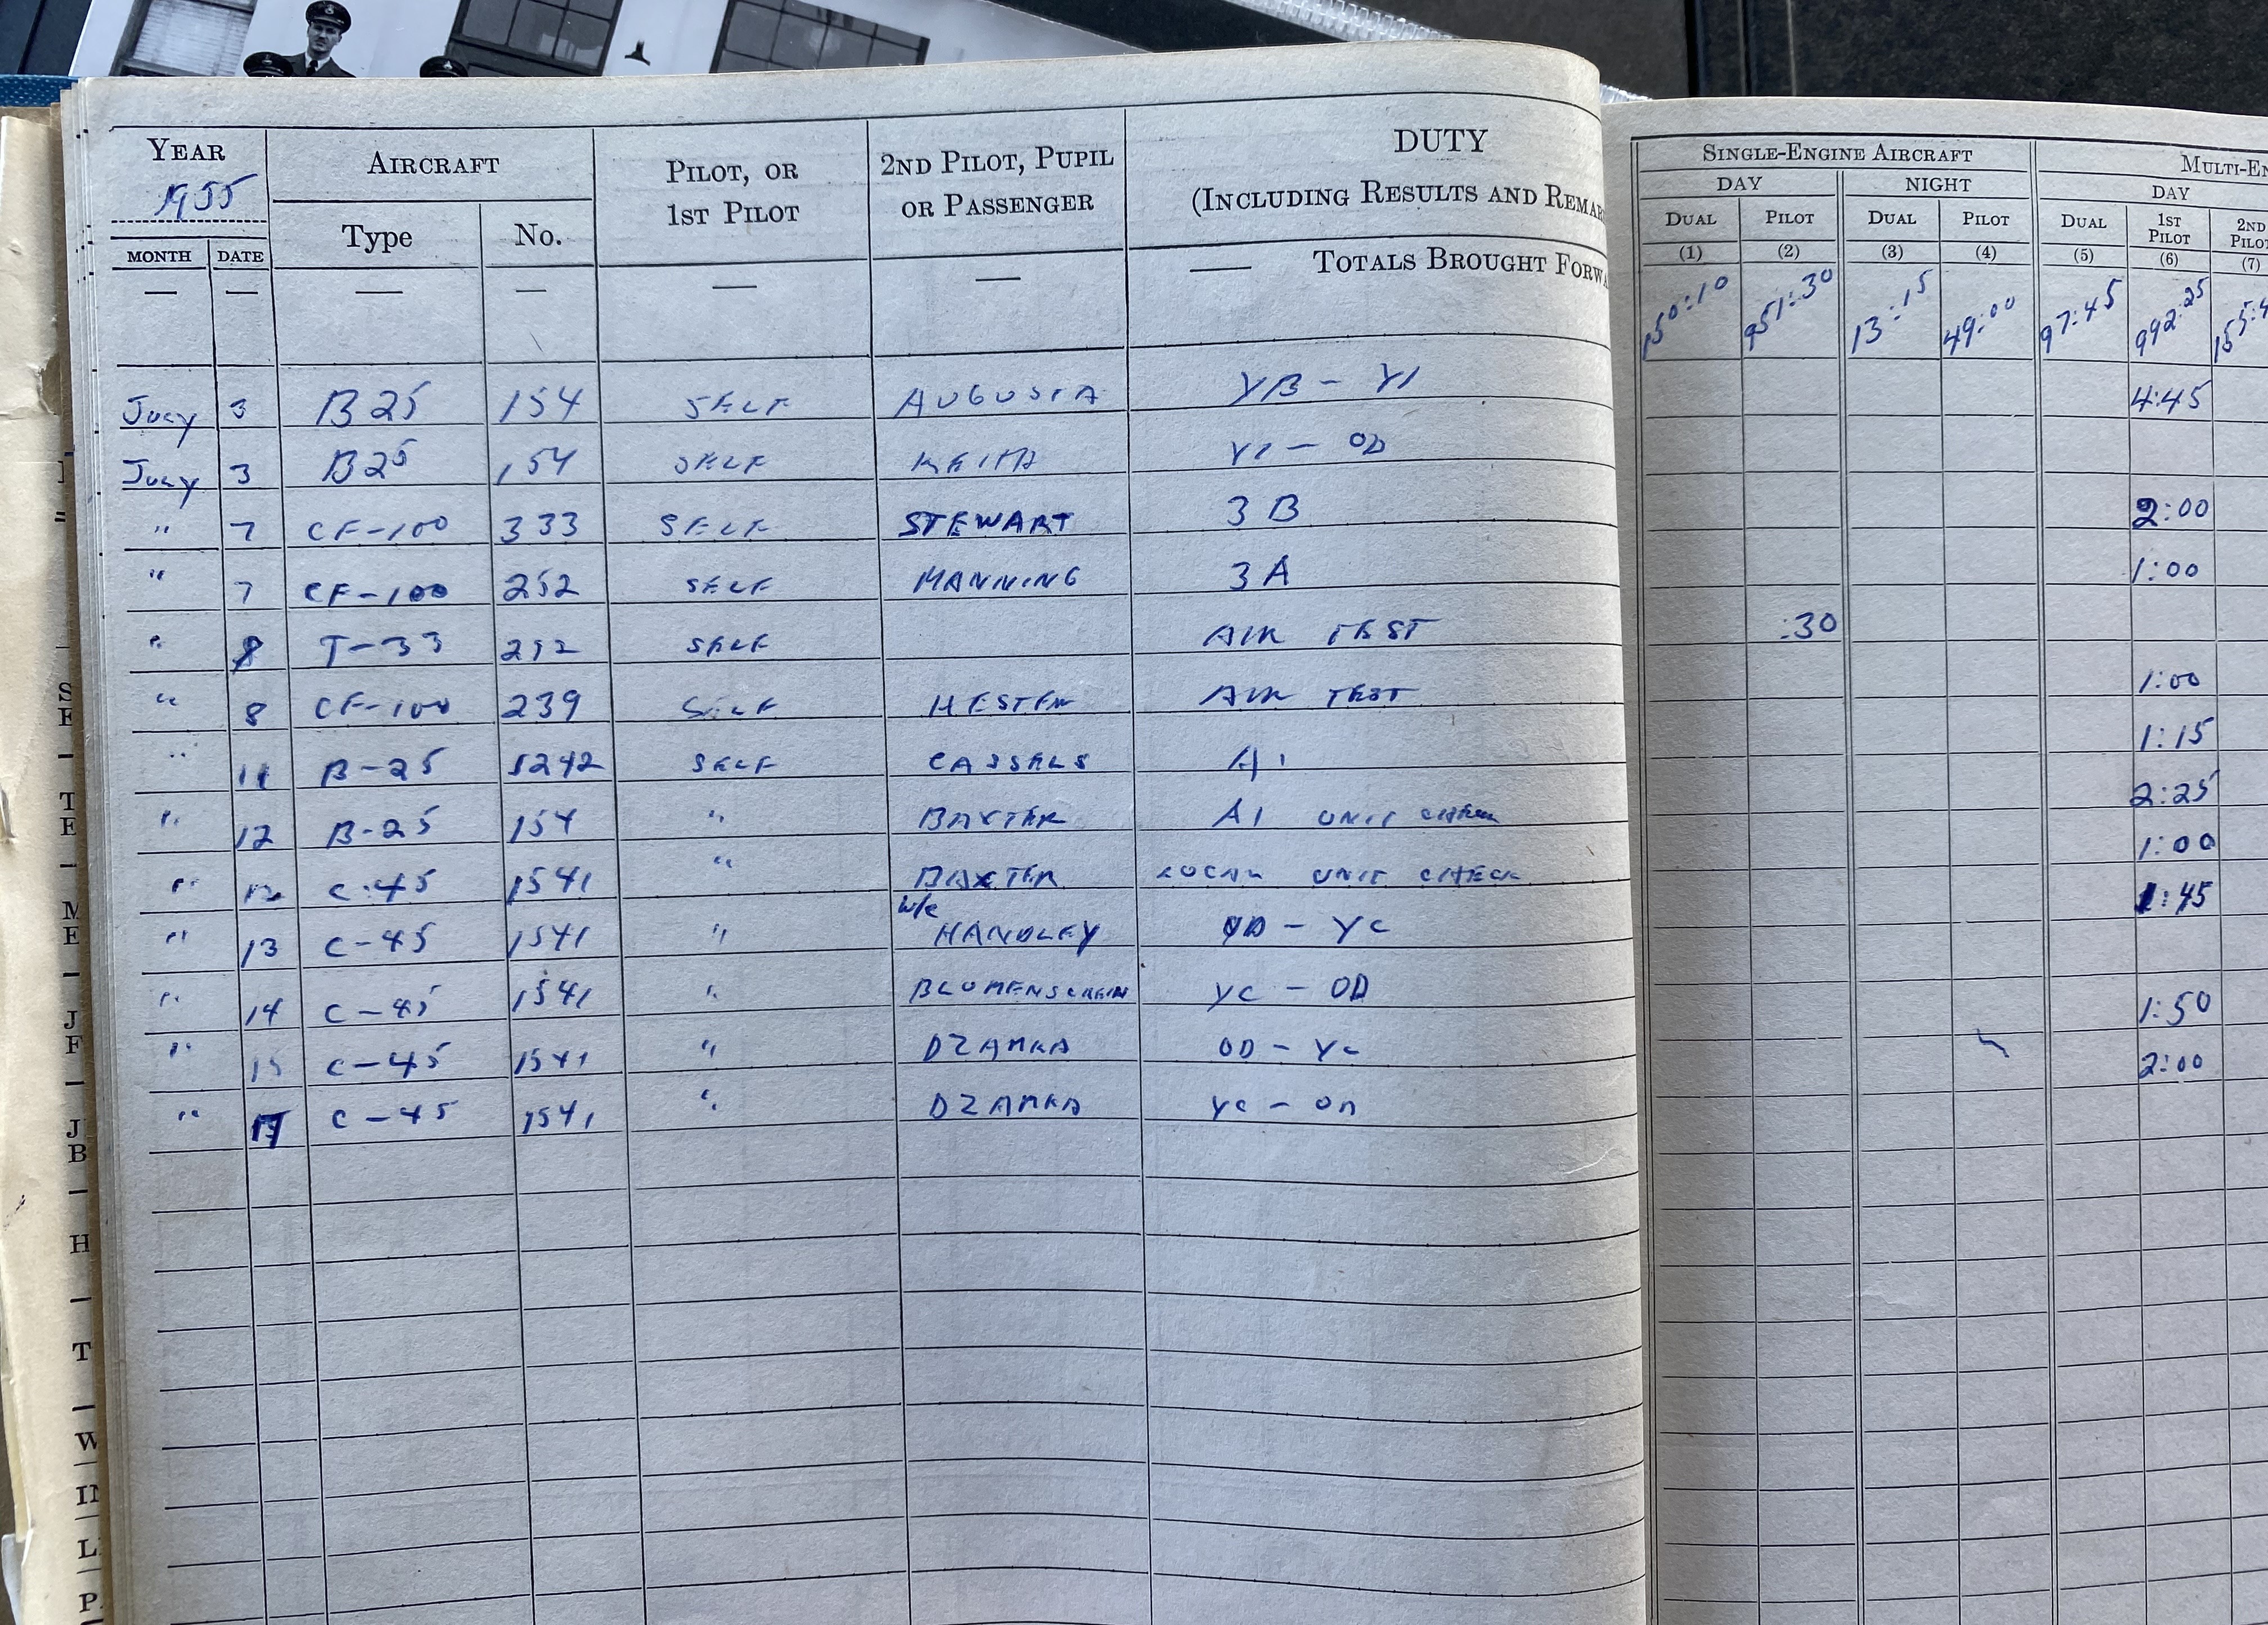 YEAR 1955 AIRCRAFT PILOT, OR 1ST PILOT 2ND PILOT, PUPIL OR PASSENGER DUTY
(INCLUDING RESULTS AND REMAR
MONTH DATE Type No. TOTALS BROUGHT FORWA
SINGLE-ENGINE AIRCRAFT MULTI-EN
DAY NIGHT DAY
DUAL PILOT DUAL PILOT DUAL 1ST PILOT 2ND PILOT
(1) (2) (3) (4) (5) (6) (7)
150:10 951:30 13:15 49:00 97:45 992:25
July 3 B25 154 SELF AUGUSTA YB - YI 4:45
July 3 B25 154 SELF KEITH - OD
" 7 CF-100 333 SELF STEWART 3B 2:00
" 7 CF-100 252 SELF MANNING 3A 1:00
" 8 T-33 SELF AIR TEST :30
" 8 CF-100 239 SELF HESTER AIR TEST 1:00
" 11 B-25 5242 SELF CASSELS A1 1:15
" 12 B-25 154 " BAXTER A1 UNIT CHECK 2:25
" C-45 1541 " BAXTER LOCAL UNIT CHECK 1:00
" 13 C-45 1541 " W/C HANDLEY OD - YC 1:45
" 14 C-45 1541 " YC - OD
" 15 C-45 1541 " DZAMKA OD - YC 1:50
" 17 C-45 1541 " DZAMKA YC - OD 2:00
S
E
T
E
M
E
J
F
J
B
H
T
W
IN
L
P